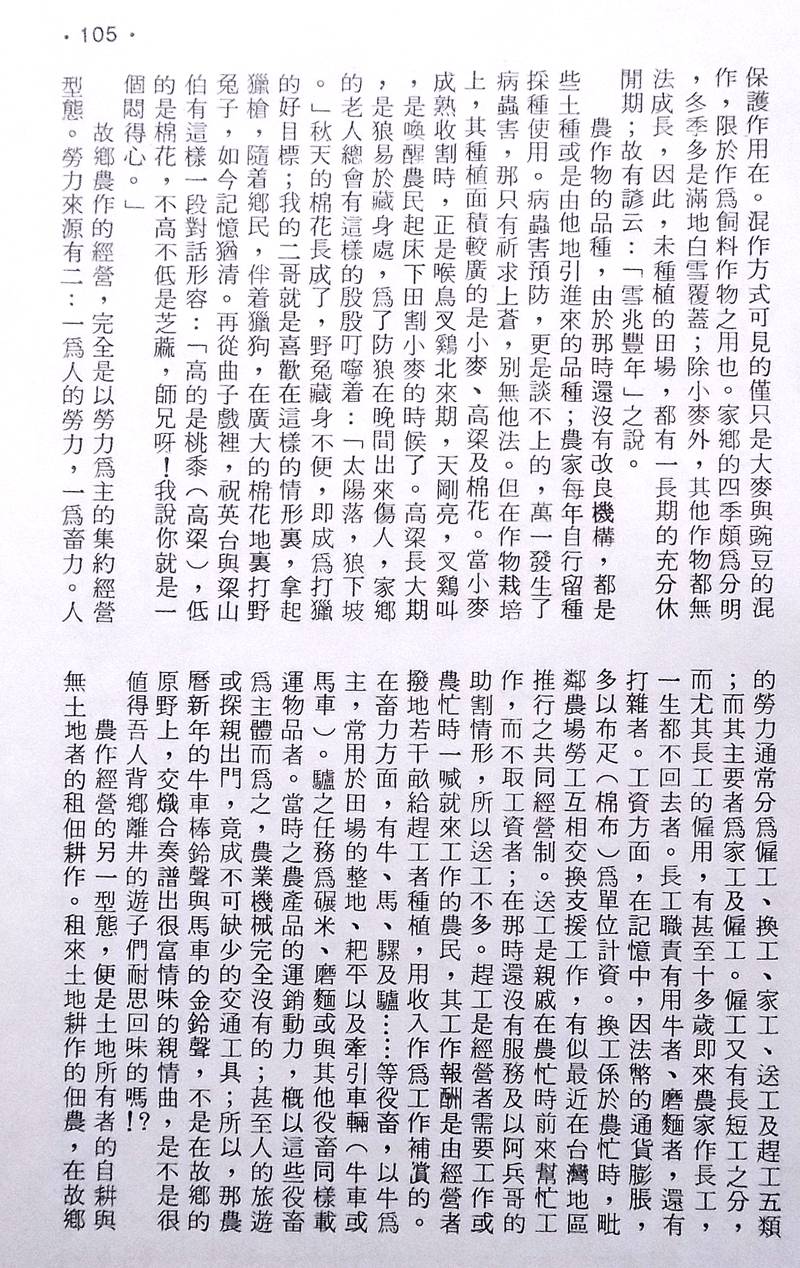 ·105·
保護作用在。混作方式可見的僅只是大麥與豌豆的混
作，限於作爲飼料作物之用也。家鄉的四季頗爲分明
，冬季多是滿地白雪覆蓋；除小麥外，其他作物都無
法成長，因此，未種植的田場，都有一長期的充分休
閒期；故有諺云：「雪兆豐年」之說。
農作物的品種，由於那時還沒有改良機構，都是
些土種或是由他地引進來的品種；農家每年自行留種
採種使用。病蟲害預防，更是談不上的，萬一發生了
病蟲害，那只有祈求上蒼，別無他法。但在作物栽培
上，其種植面積較廣的是小麥、高梁及棉花。當小麥
成熟收割時，正是喉鳥叉鷄北來期，天剛亮，叉鷄叫
，是喚醒農民起床下田割小麥的時候了。高梁長大期
，是狼易於藏身處，爲了防狼在晚間出來傷人，家鄉
的老人總會有這樣的殷殷叮嚀着：「太陽落，狼下坡
。」秋天的棉花長成了，野兔藏身不便，即成爲打獵
的好目標；我的二哥就是喜歡在這樣的情形裏，拿起
獵槍，隨着鄉民，伴着獵狗，在廣大的棉花地裏打野
兔子，如今記憶猶清。再從曲子戲裡，祝英台與梁山
伯有這樣一段對話形容：「高的是桃黍（高梁），低
的是棉花，不高不低是芝蔴，師兄呀！我說你就是一
個悶得心。」
故鄉農作的經營，完全是以勞力爲主的集約經營
型態。勞力來源有二：一爲人的勞力，一爲畜力。人
的勞力通常分爲僱工、換工、家工、送工及趕工五類
；而其主要者爲家工及僱工。僱工又有長短工之分，
而尤其長工的僱用，有甚至十多歲即來農家作長工，
一生都不回去者。長工職責有用牛者、磨麵者，還有
打雜者。工資方面，在記憶中，因法幣的通貨膨脹，
多以布疋（棉布）爲單位計資。換工係於農忙時，毗
鄰農場勞工互相交換支援工作，有似最近在台灣地區
推行之共同經營制。送工是親戚在農忙時前來幫忙工
作，而不取工資者；在那時還沒有服務及以阿兵哥的
助割情形，所以送工不多。趕工是經營者需要工作或
農忙時一喊就來工作的農民，其工作報酬是由經營者
撥地若干畝給趕工者種植，用收入作爲工作補償的。
在畜力方面，有牛、馬、騾及驢……等役畜，以牛爲
主，常用於田場的整地、耙平以及牽引車輛（牛車或
馬車）。驢之任務爲碾米、磨麵或與其他役畜同樣載
運物品者。當時之農產品的運銷動力，概以這些役畜
爲主體而爲之，農業機械完全沒有的；甚至人的旅遊
或探親出門，竟成不可缺少的交通工具；所以，那農
曆新年的牛車棒鈴聲與馬車的金鈴聲，不是在故鄉的
原野上，交熾合奏譜出很富情味的親情曲，是不是很
值得吾人背鄉離井的遊子們耐思回味的嗎！？
農作經營的另一型態，便是土地所有者的自耕與
無土地者的租佃耕作。租來土地耕作的佃農，在故鄉